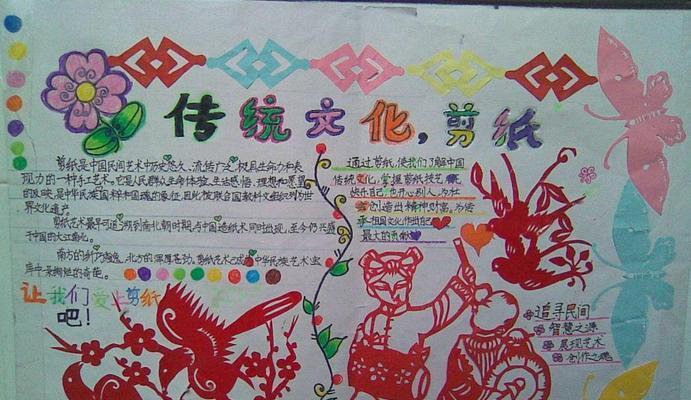 传统文化,剪纸
剪纸是中国民间艺术中历史悠久、流传广泛,极具生命力和表
现力的一种手工艺术。它是人民群众生命体验、生活感悟、理想和愿望
的反映,是中华民族国粹和国魂的象征,因此被联合国教科文组织列为世
界文化遗产。
剪纸艺术最早可追溯到南北朝时期,与中国造纸术同时出现,至今仍流传
于中国的大江南北。
南方的纤巧秀逸,北方的浑厚苍劲,剪纸艺术已成为中华民族艺术宝
库中朵绚烂的奇葩。
让我们爱上剪纸
吧!
通过剪纸,使我们了解中国
传统文化,掌握剪纸技艺,既
快乐自己,也开心别人,为社
会创造出精神财富,为传
承祖国文化作出自己
最大的贡献
追寻民间
智慧之源
展现艺术
创作之魂